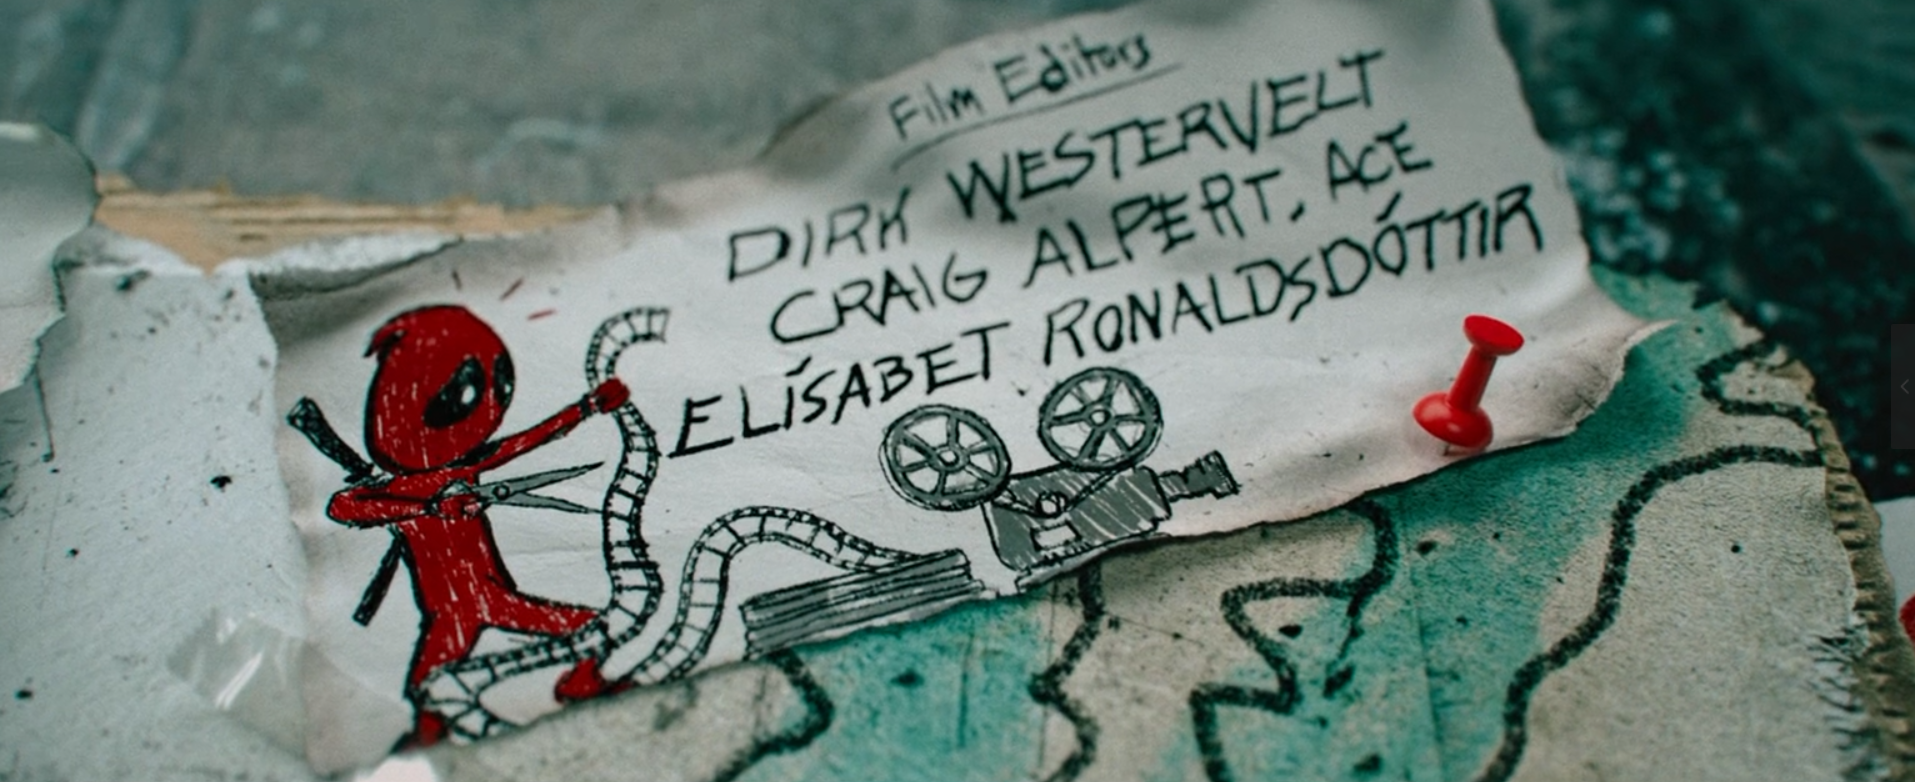 Film Editors
DIRK WESTERVELT
CRAIG ALPERT, ACE
ELÍSABET RONALDSDÓTTIR